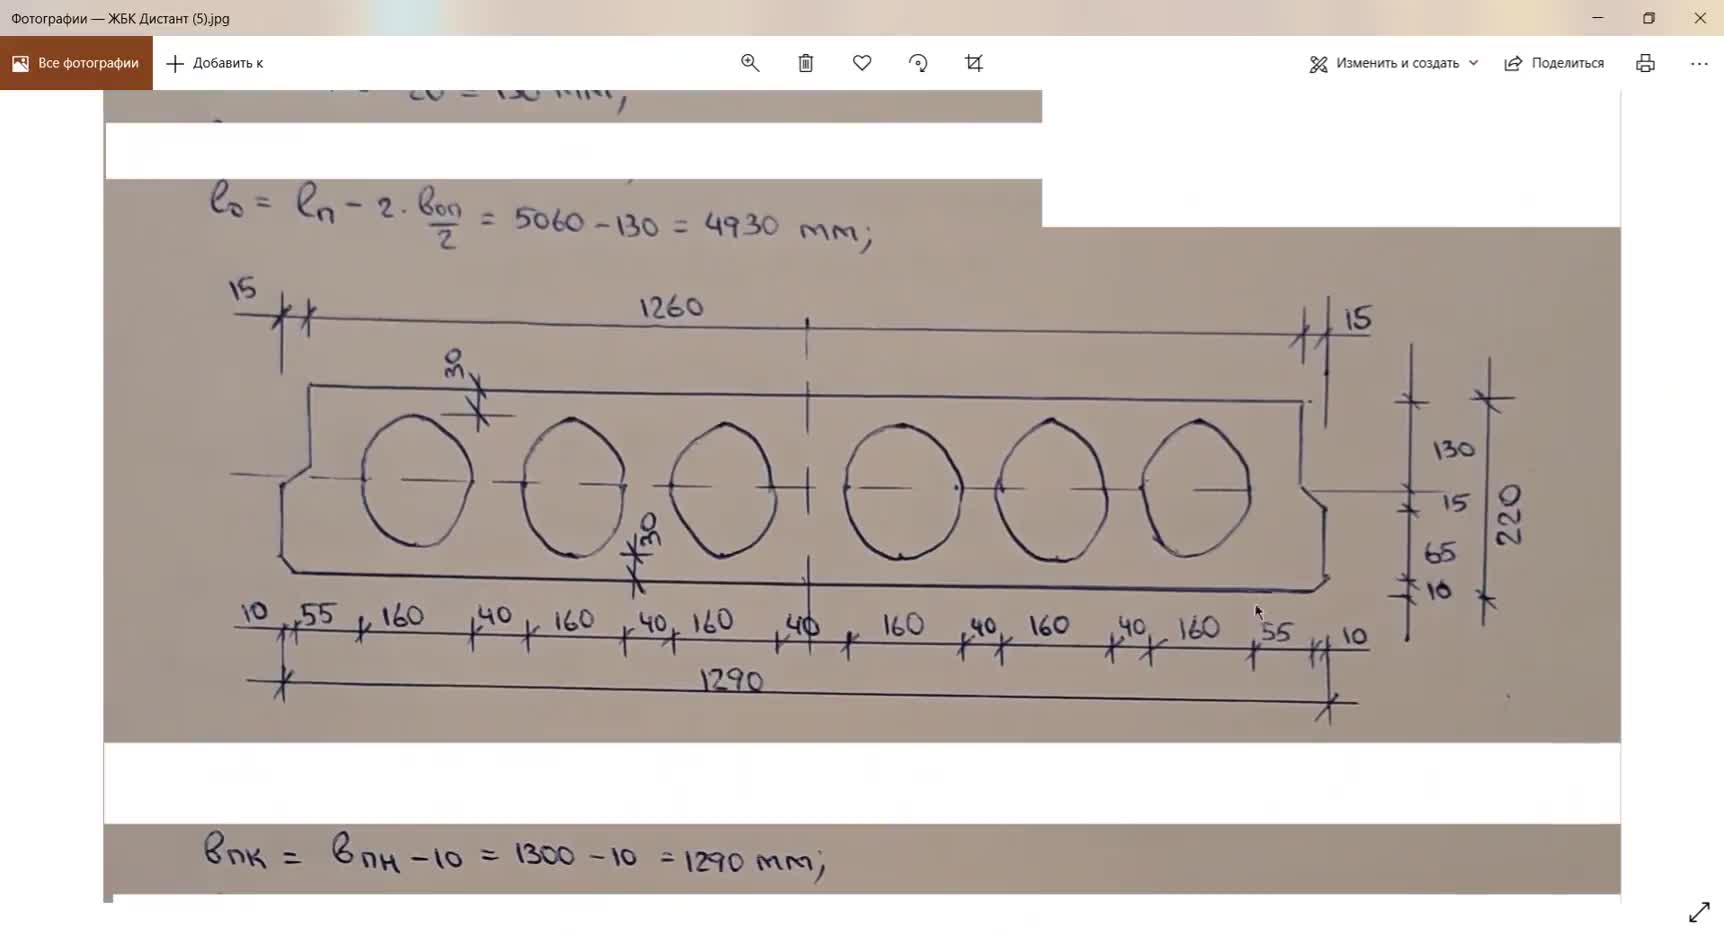 Фотографии — ЖБК Дистант (5).jpg
Все фотографии
Добавить к
Изменить и создать
Поделиться
20 = 130 мм;
l₀ = lп – 2 · bоп/2 = 5060 – 130 = 4930 мм;
15 1260 15
30
130
15
65
10
220
30
10 55 160 40 160 40 160 40 160 40 160 40 160 55 10
1290
bпк = bпн – 10 = 1300 – 10 = 1290 мм;